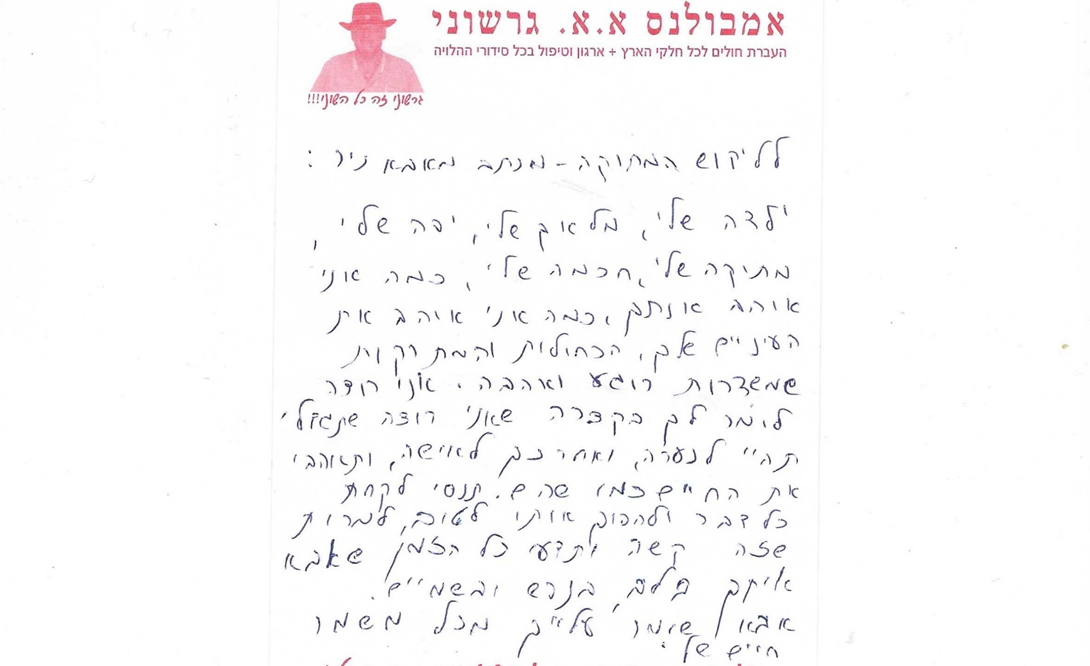 אמבולנס א.א. גרשוני
העברת חולים לכל חלקי הארץ + ארגון וטיפול בכל סידורי ההלויה
גרשוני זה כל השוני!!!
לליקוש המתוקה - מכתב מאבא ניר :
ילדה שלי, מלאך שלי, יפה שלי,
מתיקה שלי, חכמה שלי, כמה אני
אוהב אותך, כמה אני אוהב את
העיניים שלך, הכחולות והמתוקות
שמשדרות רוגע ואהבה. אני רוצה
לומר לך בקצרה שאני רוצה שתגדלי
תהיי לנערה, ואחר כך לאישה, ותאהבי
את החיים כמו שהם. תנסי לקחת
כל דבר ולהפוך אותו לטוב, למרות
שזה קשה ותדעי כל הזמן שאבא
איתך בלב, בנפש ובשמיים.
אבא שומר עלייך מכל משמר
חיים שלי.